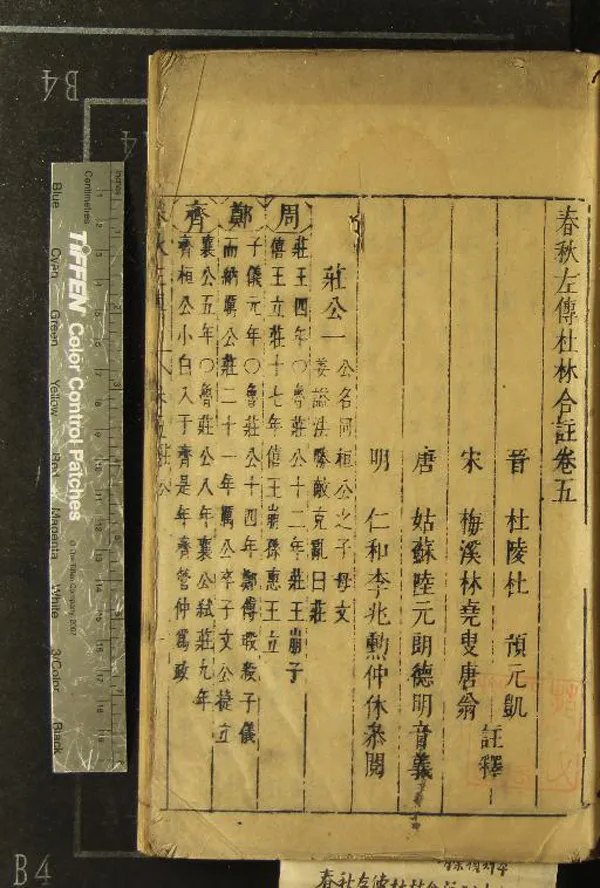 春秋左傳杜林合註卷五
晉 杜陵杜 預元凱
宋 梅溪林堯叟唐翁
註釋
唐 姑蘇陸元朗德明音義
明 仁和李兆勳仲休叅閱
莊公一 公名同桓公之子母文
姜諡法勝敵克亂曰莊
周 莊王四年○魯莊公十二年莊王崩子
僖王立莊十七年僖王崩孫惠王立
鄭 子儀元年○魯莊公十四年鄭傅瑕殺子儀
而納厲公莊二十一年厲公卒子文公捷立
齊 襄公五年○魯莊公八年襄公弒莊九年
齊桓公小白入于齊是年齊管仲爲政
B4
B4
inches
Centimetres
TIFFEN Color Control Patches
© The Tiffen Company, 2007
Blue
Cyan
Green
Yellow
Red
Magenta
White
3/Color
Black
春秋左傳杜林合註